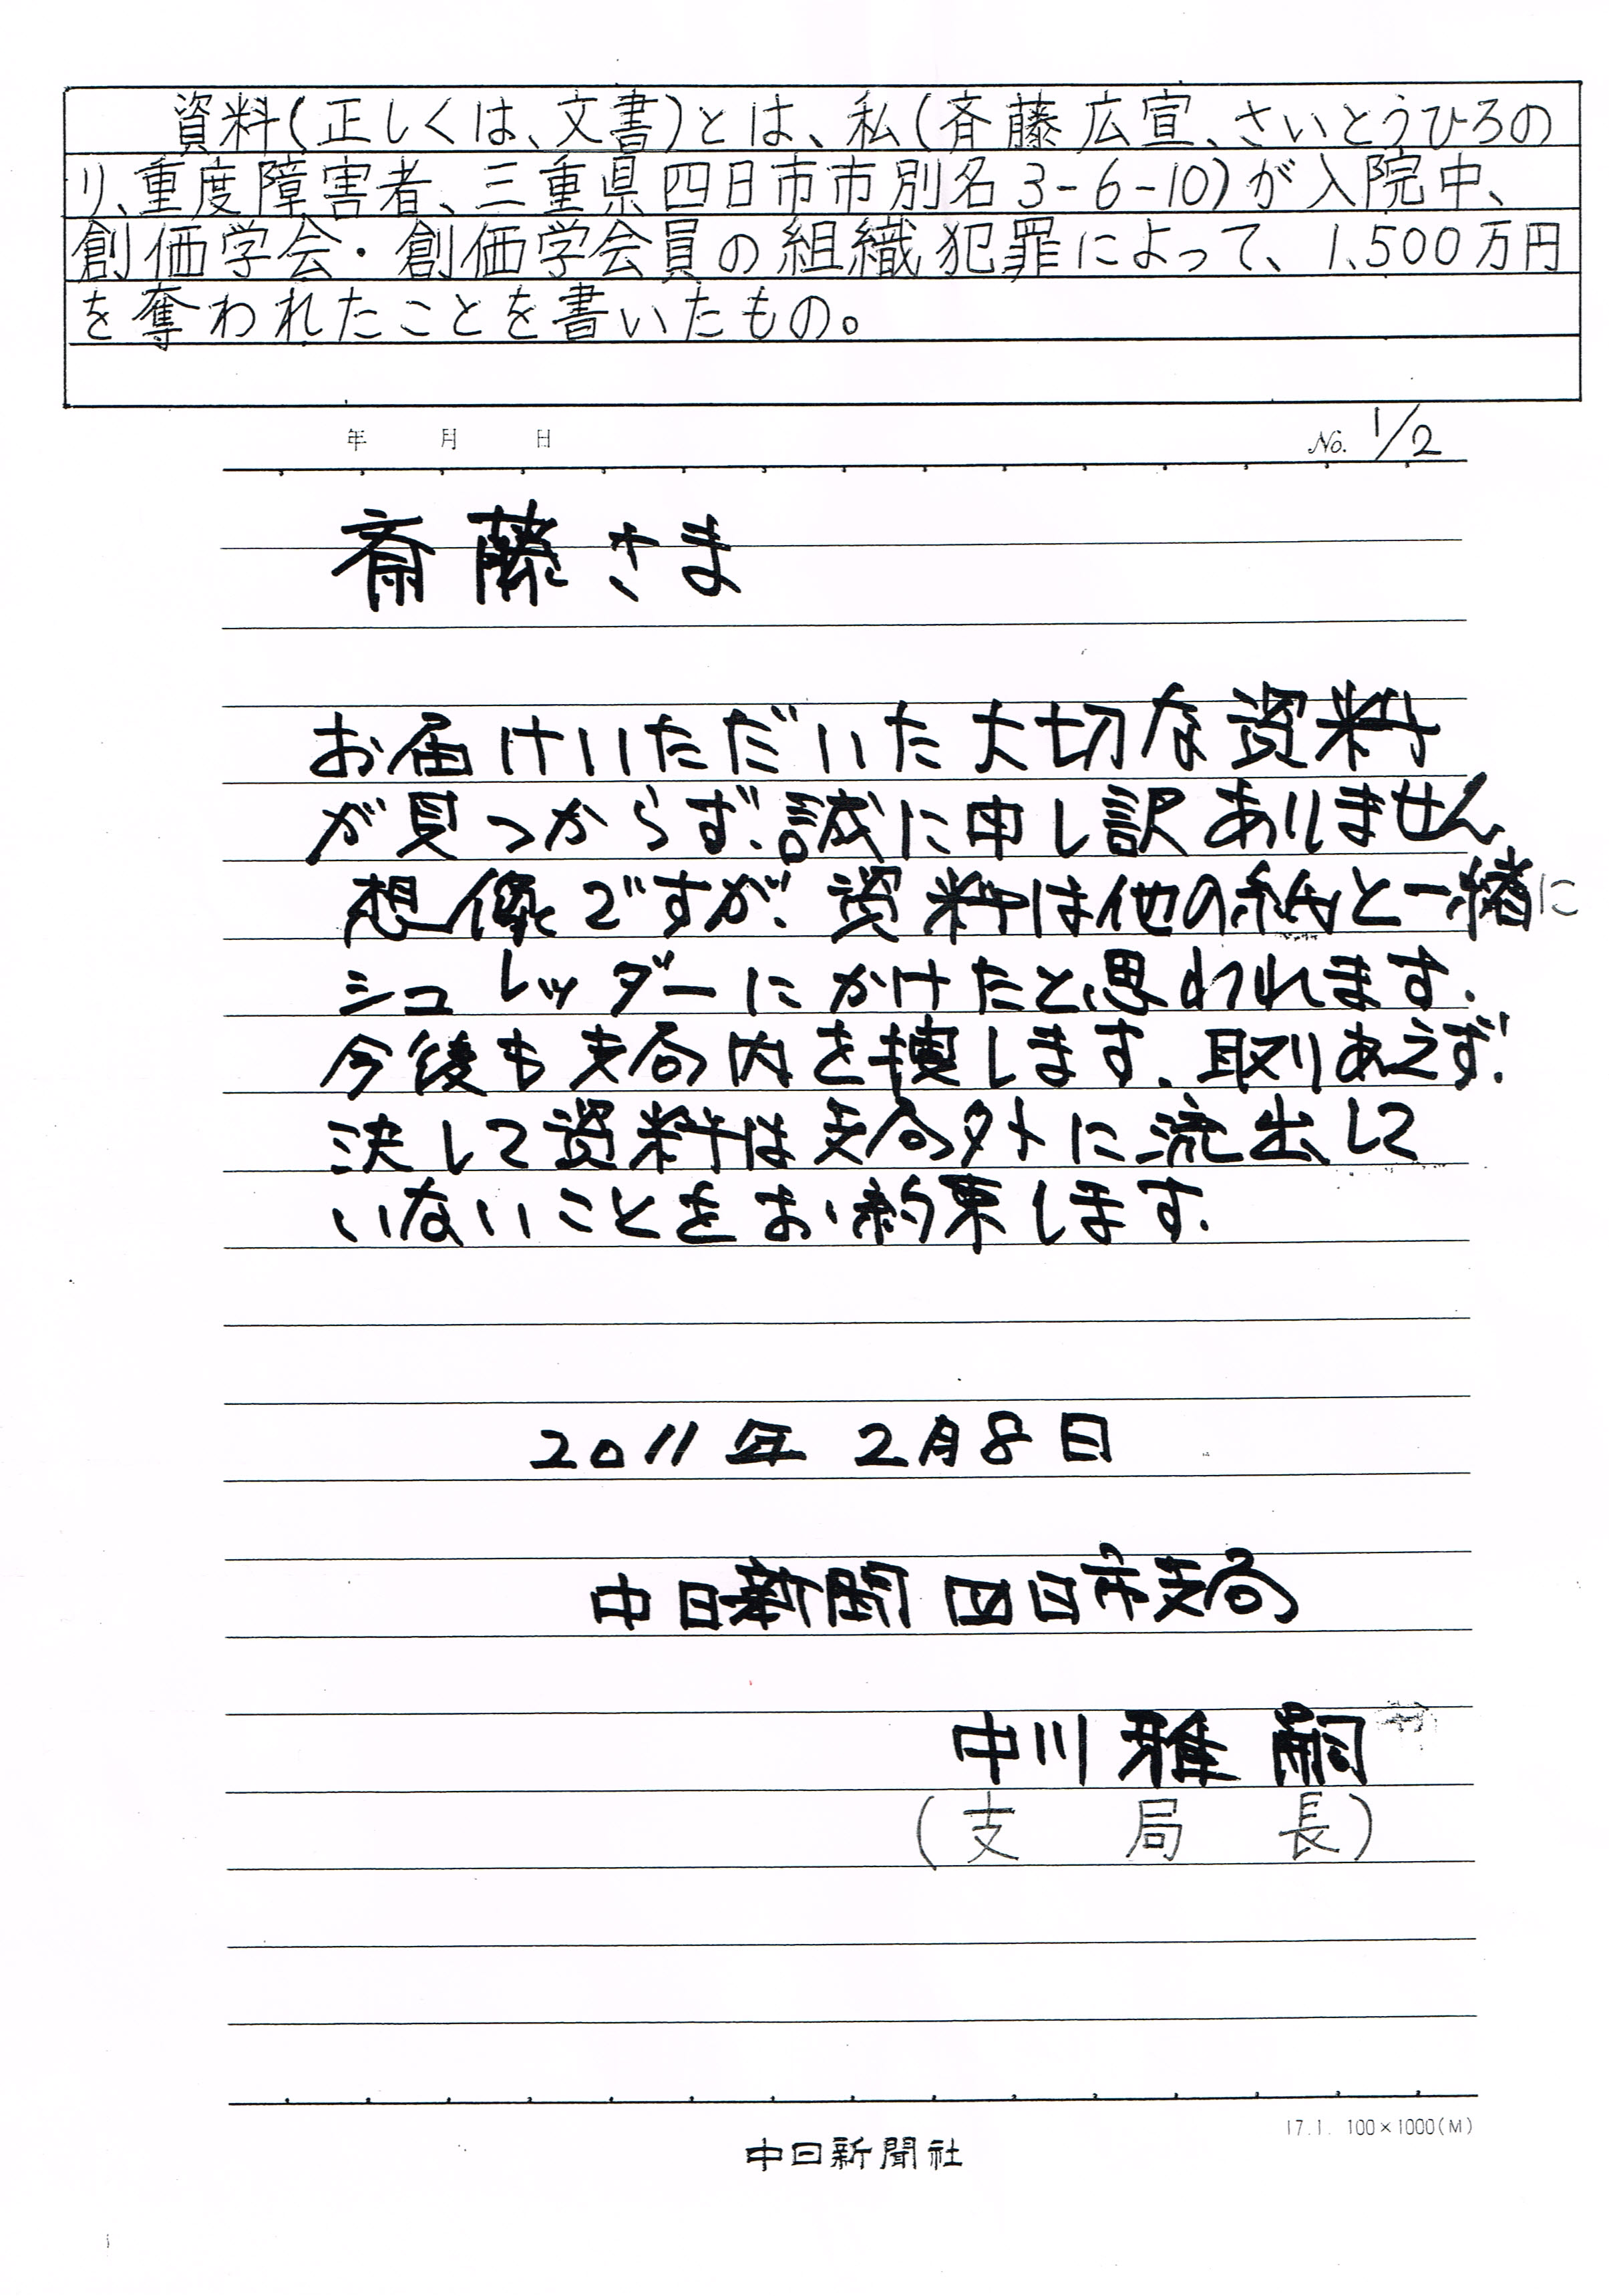 資料(正しくは、文書)とは、私(斉藤広宣、さいとうひろの
り、重度障害者、三重県四日市市別名3-6-10)が入院中、
創価学会・創価学会員の組織犯罪によって、1,500万円
を奪われたことを書いたもの。
年 月 日 No. 1/2
斎藤さま
お届けいただいた大切な資料
が見つからず、誠に申し訳ありません
想像ですが、資料は他の紙と一緒に
シュレッダーにかけたと思われます.
今後も支局内を捜します. 取りあえず.
決して資料は支局外に流出して
いないことをお約束します.
2011年 2月8日
中日新聞 四日市支局
中川 雅嗣
(支局長)
17.1. 100×1000(M)
中日新聞社